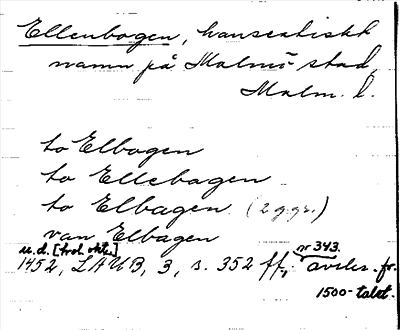 Ellenbogen, hanseatiskt
namn på Malmö stad,
Malm. l.
to Elbogen
to Ellebagen
to Elbagen (2 ggr.)
van Elbagen
u. d. [trol. okt.] nr 343.
1452, LAUB, 3, s. 352 ff, avskr. fr.
1500-talet.